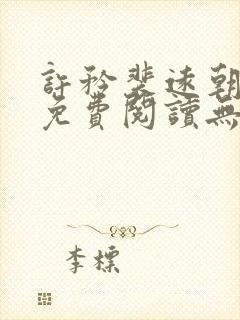 許矜裴速朝
免費閱讀無
李標